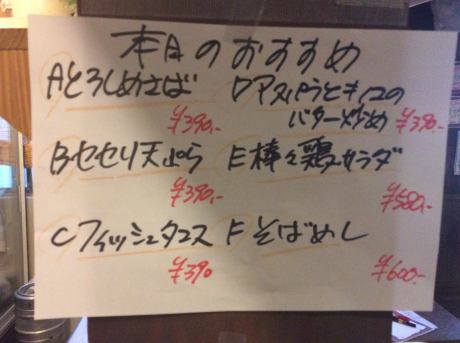 本日のおすすめ
Aとろしめさば
¥390-
Bセセリ天ぷら
¥390-
Cフィッシュタコス
¥390
Dアスパラとキノコの
バター炒め ¥390-
E棒々鶏サラダ
¥580-
Fそばめし
¥600-